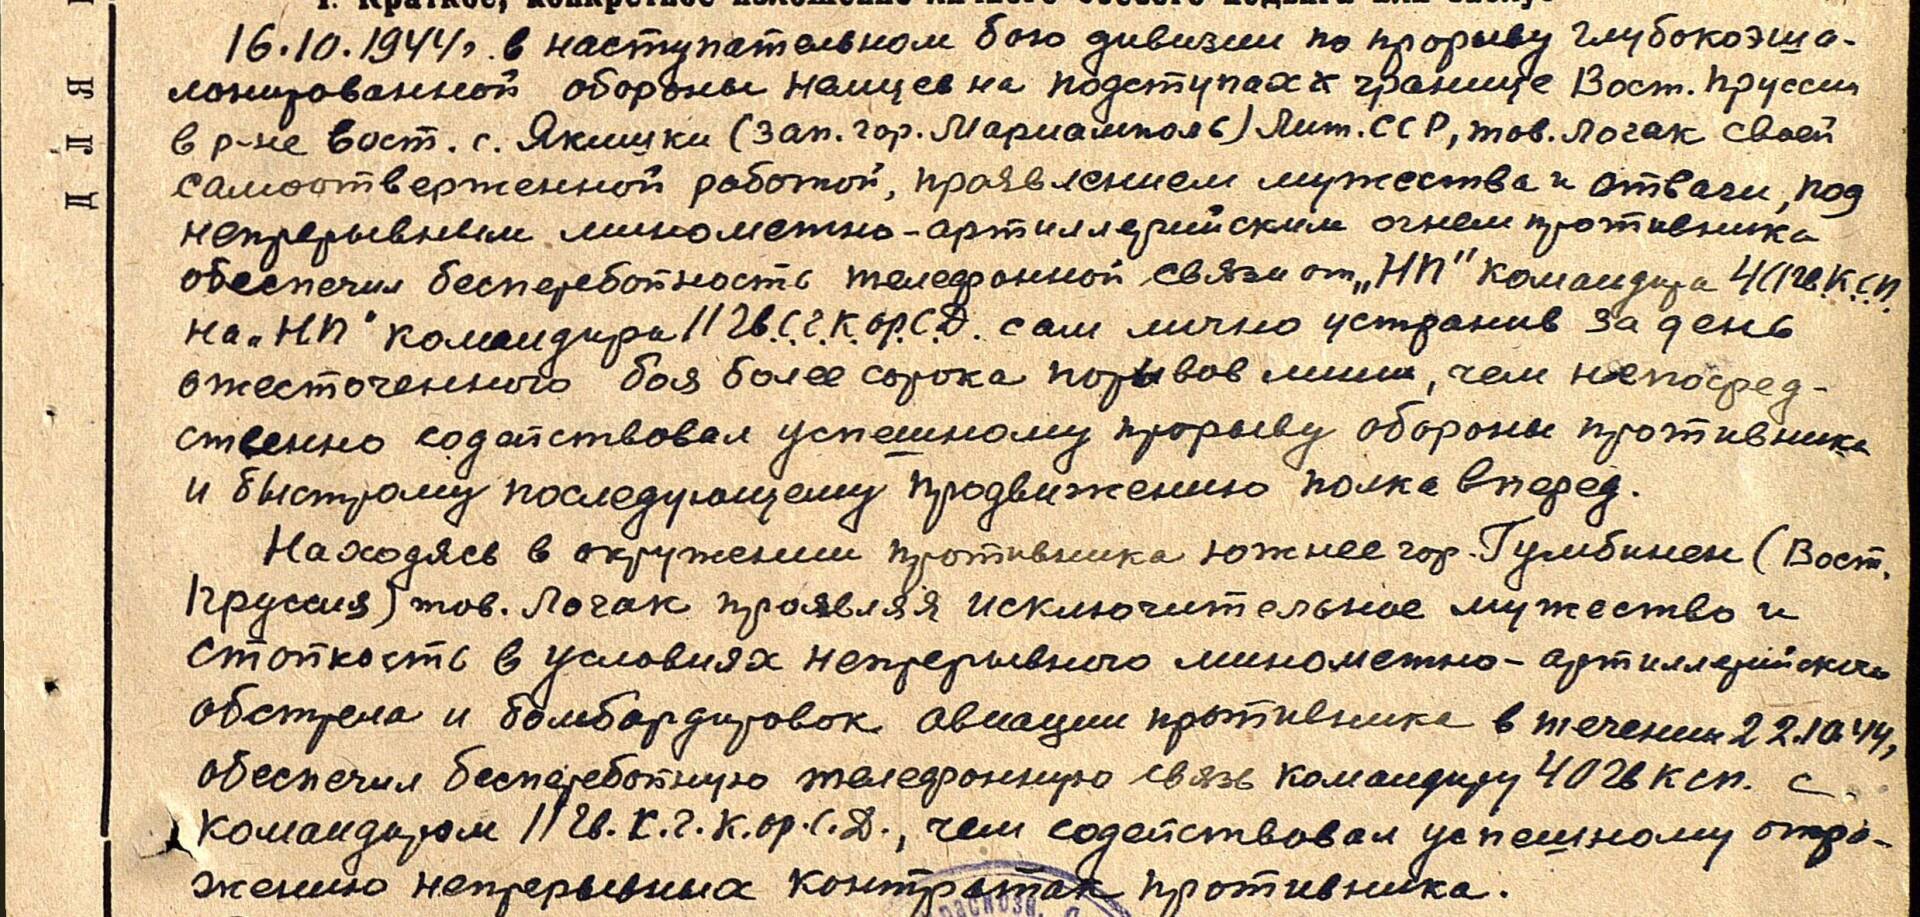 1. Краткое, конкретное изложение личного боевого подвига или заслуг
16.10.1944г. в наступательном бою дивизии по прорыву глубокоэше-
лонированной обороны немцев на подступах к границе Вост. Пруссии
в р-не вост. с. (зап. гор. Мариамполь) Лит. ССР, тов. Логак своей
самоотверженной работой, проявлением мужества и отваги, под
непрерывным минометно-артиллерийским огнем противника
обеспечил бесперебойность телефонной связи от „НП" командира 40 Гв.К.С.П.
на „НП" командира 11 Гв.С.Г.К.ор.С.Д. сам лично устранив за день
ожесточенного боя более сорока порывов линии, чем непосред-
ственно содействовал успешному прорыву обороны противника
и быстрому последующему продвижению полка вперед.
Находясь в окружении противника южнее гор. Гумбинен (Вост.
Пруссия) тов. Логак проявляя исключительное мужество и
стойкость в условиях непрерывного минометно-артиллерийского
обстрела и бомбардировок авиации противника в течении 22.10.44,
обеспечил бесперебойную телефонную связь командиру 40 Гв К сп. с
командиром 11 Гв. С.Г.К.ор.С.Д., чем содействовал успешному отра-
жению непрерывных контратак противника.
В Г Д